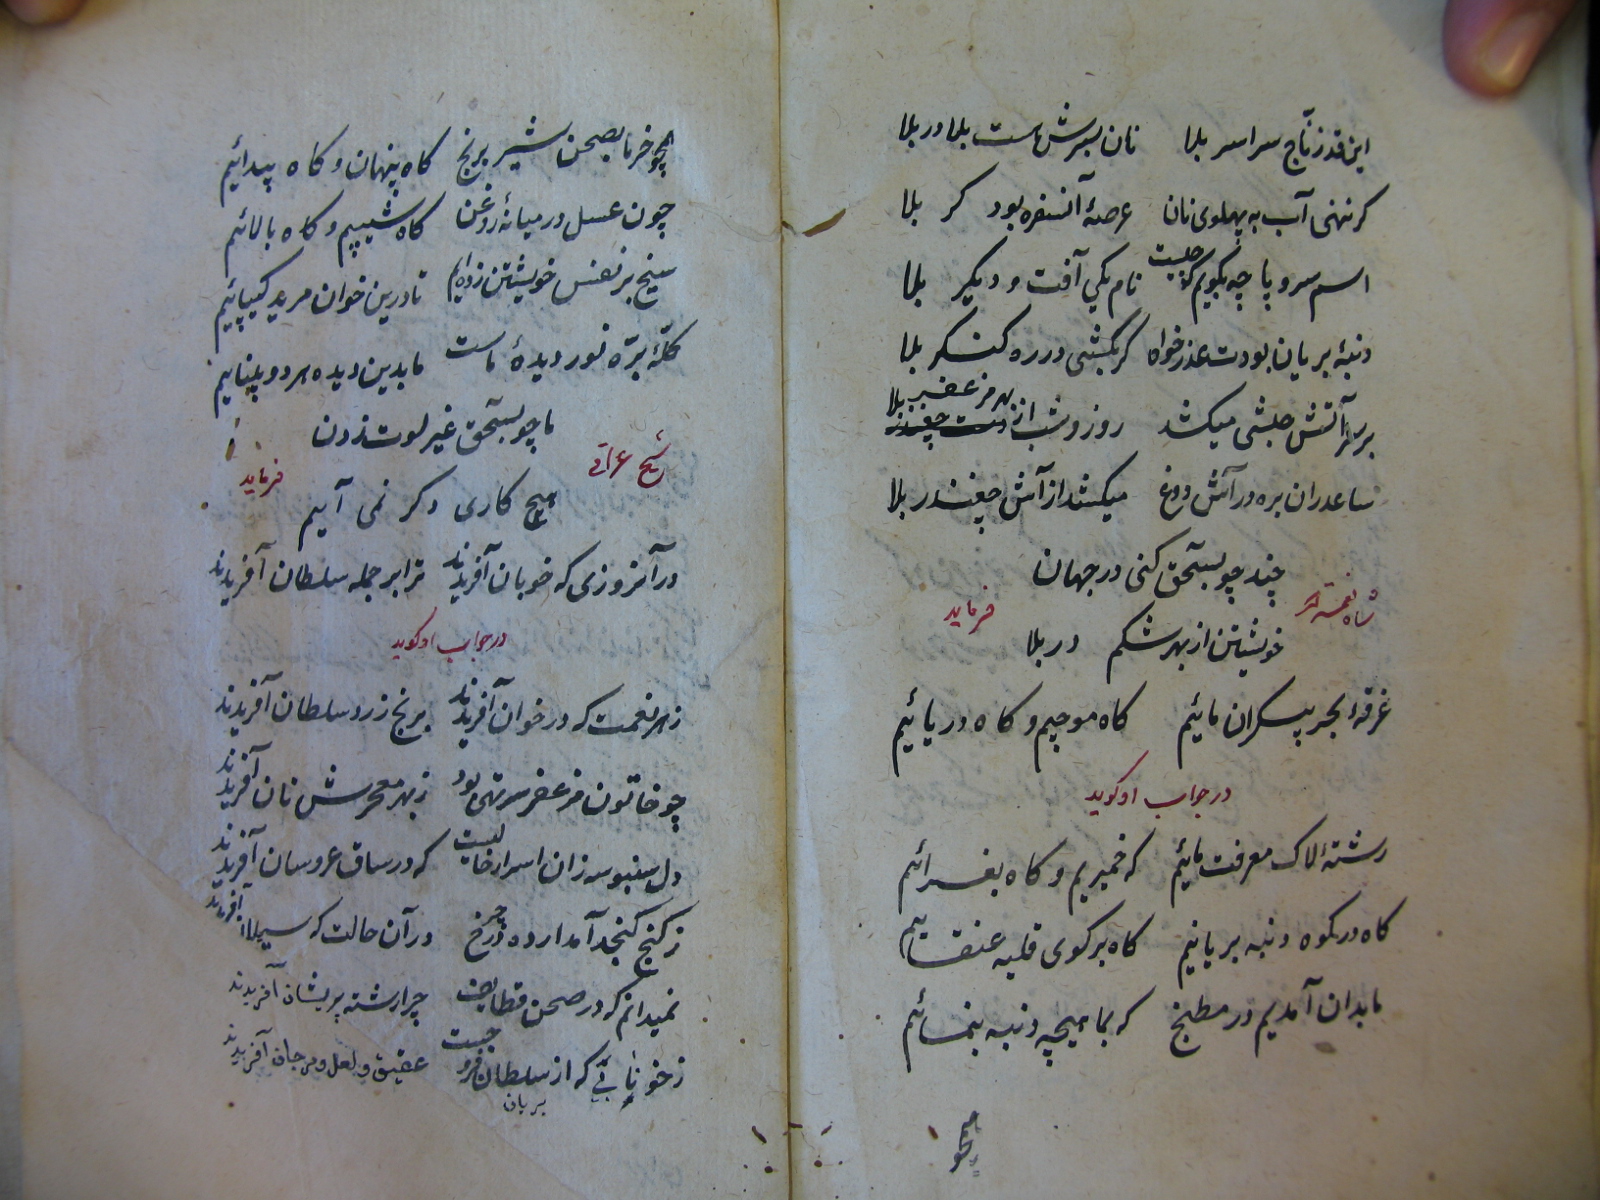 این قدر نتاج سراسر بلا نان بسرش هست بلا در بلا
گر ننهی آب به پهلوی نان عرصهٔ آن سفره بود کر بلا
اسم سر و پا چه بگویم که چیست نام یکی آفت و دیگر بلا
دنبهٔ بریان بودت عذرخواه گر بکشی در ره کنگر بلا
بر سر آتش حبشی میکشد روز و شب از بهر مزعفر بلا
ساعد ران بره در آش دوغ میکشد از آش چغندر بلا
چند چو بسحق کنی در جهان
خویشتن از بهر شکم در بلا
شاه نعمت الله فرماید
غرقهٔ بحر بیکران مائیم گاه موجیم و گاه دریائیم
در جواب او گوید
رشتهٔ لاک معرفت مائیم که خمیریم و گاه بغرائیم
گاه در کوه دنبه بریانیم گاه بر کوی قلیه عنقائیم
ما بدان آمدیم در مطبخ که بماهیچه دنبه بنمائیم
همچو
همچو خرما بصحن شیر برنج گاه پنهان و گاه پیدائیم
چون عسل در میانهٔ روغن گاه شیبیم و گاه بالائیم
سیخ بر نفس خویشتن زده‌ایم تا درین خوان مرید کیپائیم
کلّهٔ برّه نور دیدهٔ ماست ما بدین دیده هر دو بینائیم
ما چو بسحق غیر لوت زدن
هیچ کاری دگر نمی آییم
شیخ عراقی فرماید
در آنروزی که خوبان آفریدند ترا بر جمله سلطان آفریدند
در جواب او گوید
ز هر نعمت که در خوان آفریدند برنج زرد سلطان آفریدند
چو خاتون مزعفر سر تهی بود ز بهر معجرش نان آفریدند
دل سنبوسه زان اسرار خالیست که در ساق عروسان آفریدند
ز کنج کنجد آمد ارده در چرخ در آن حالت که سیلان آفریدند
نمیدانم که در صحن قطایف چرا رشته پریشان آفریدند
ز خونابی که از سلطان فرو جست عقیق و لعل و مرجان آفریدند
بریان